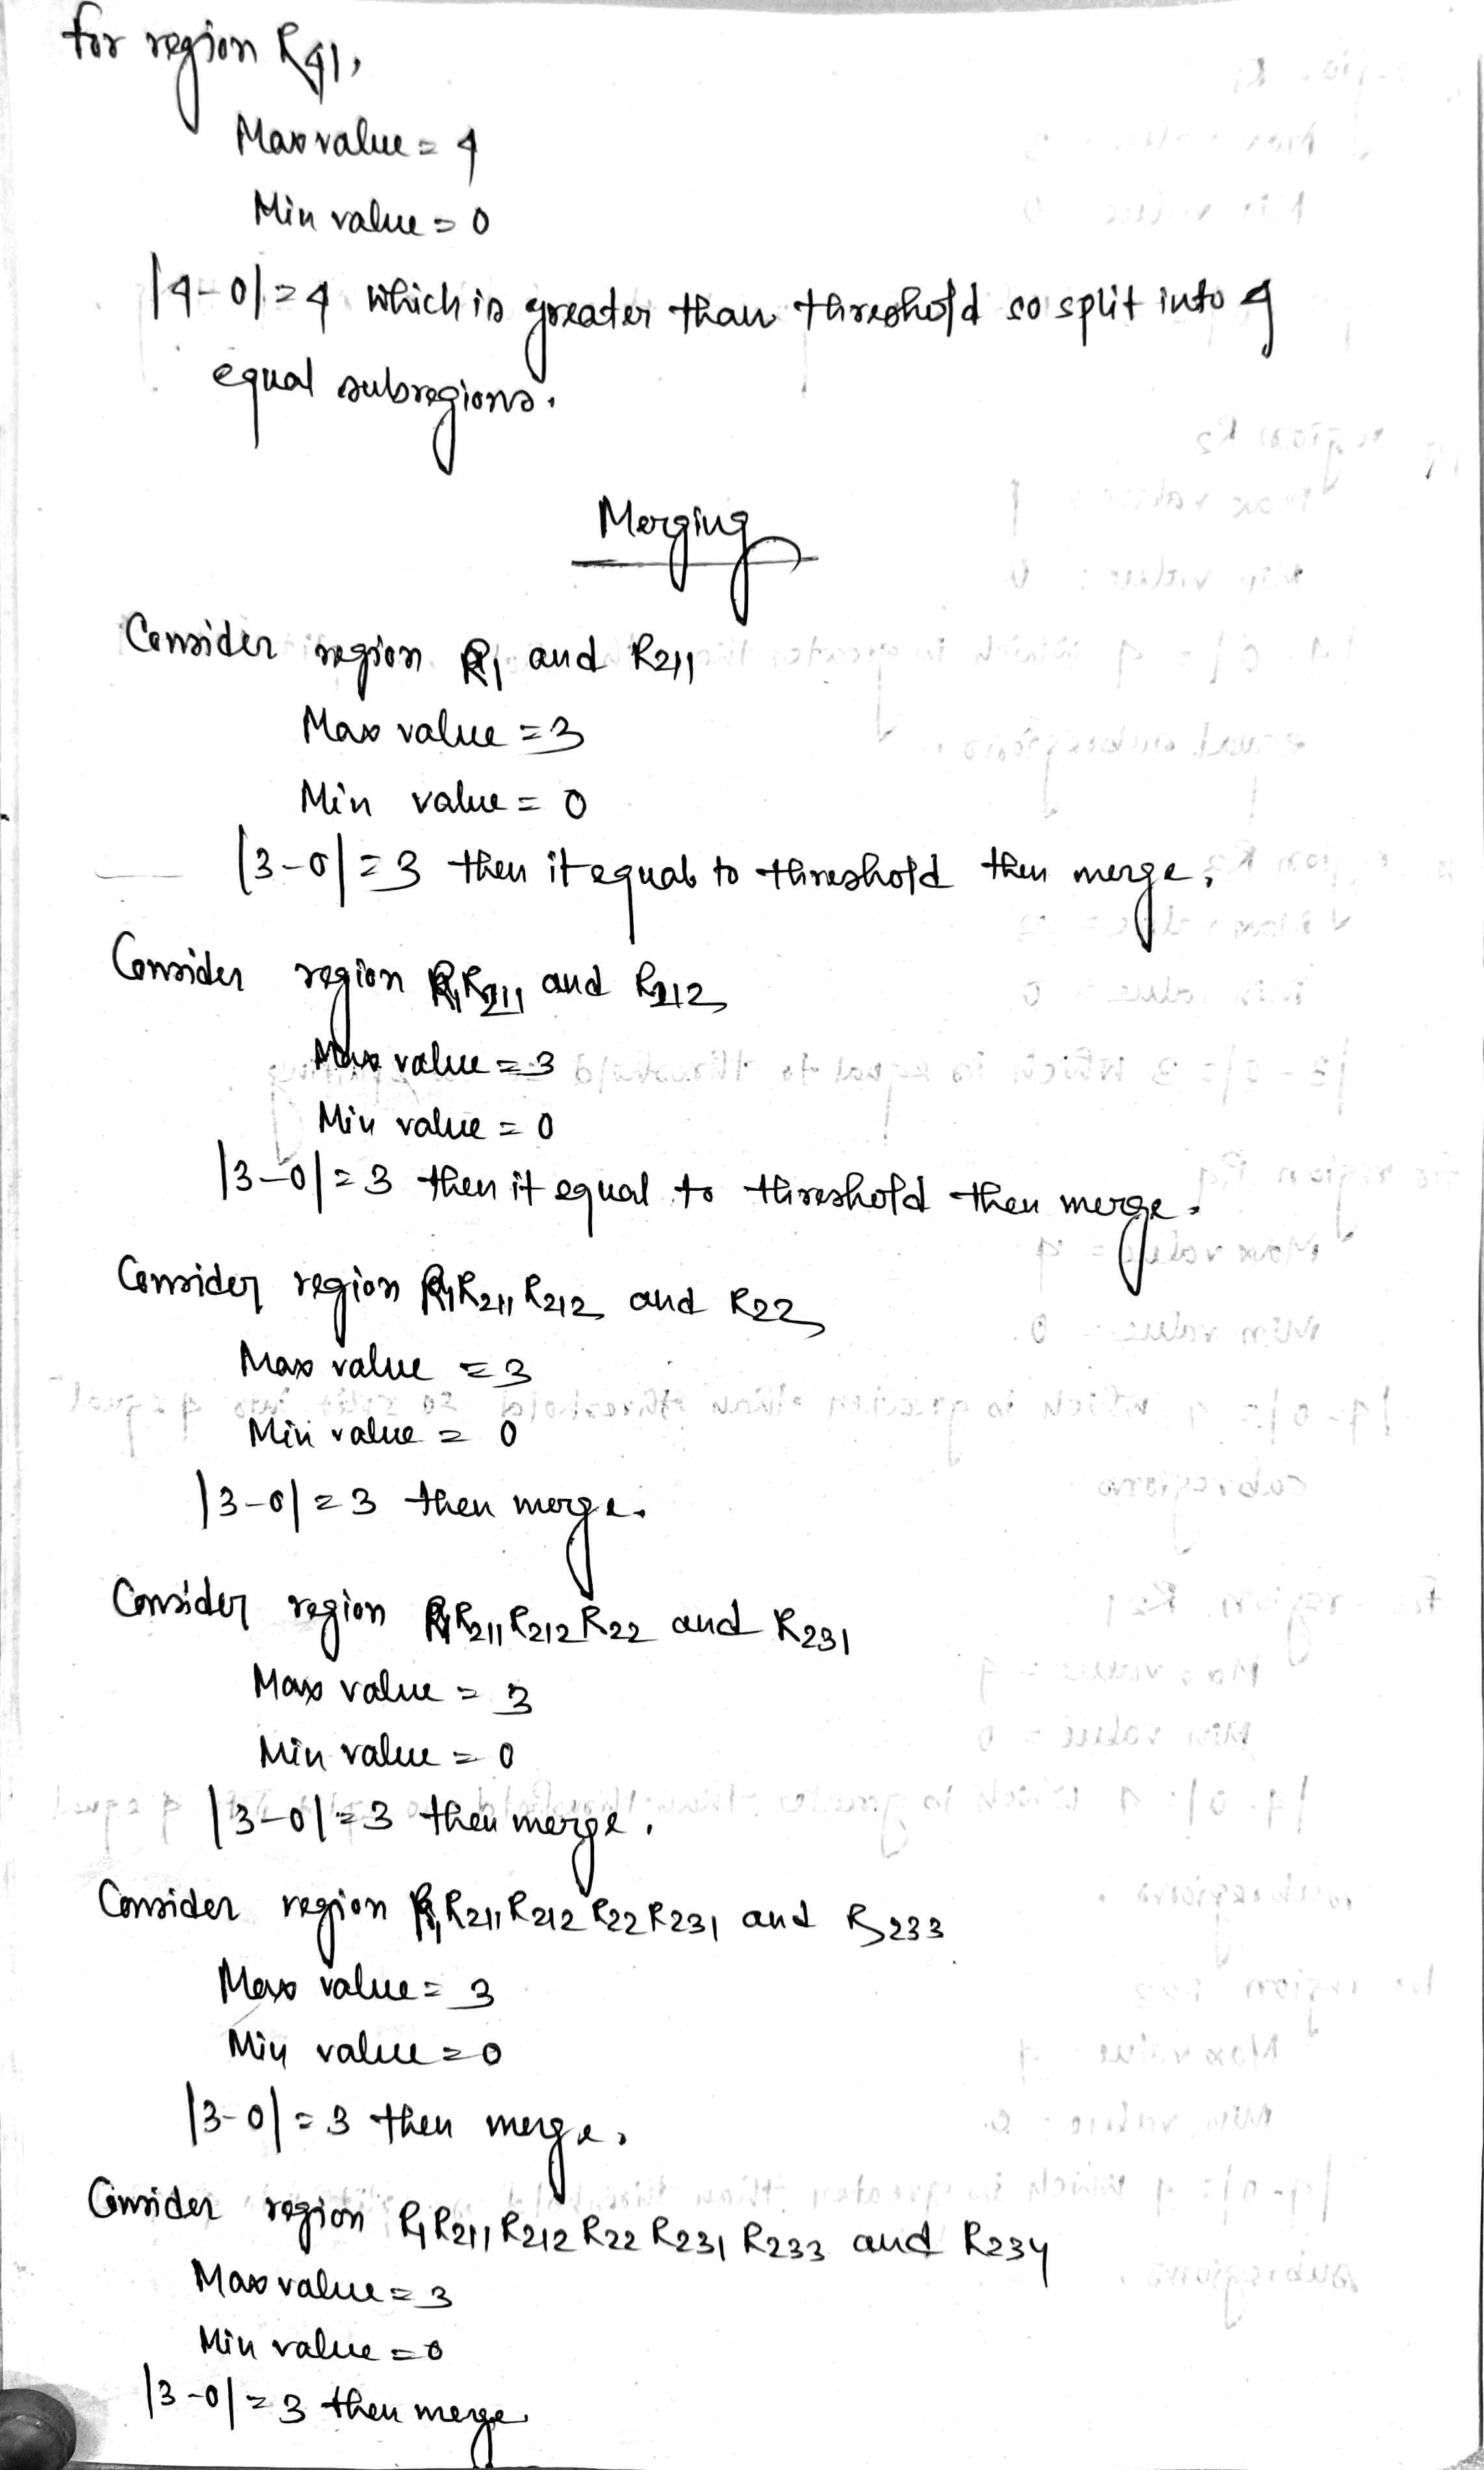 for region R41,
Max value = 4
Min value = 0
|4-0| = 4 which is greater than threshold so split into 4
equal subregions.
Merging
Consider region R1 and R211
Max value = 3
Min value = 0
|3-0| = 3 then it equal to threshold then merge.
Consider region R1R211 and R212
Max value = 3
Min value = 0
|3-0| = 3 then it equal to threshold then merge.
Consider region R1R211R212 and R22
Max value = 3
Min value = 0
|3-0| = 3 then merge.
Consider region R1R211R212R22 and R231
Max value = 3
Min value = 0
|3-0| = 3 then merge.
Consider region R1R211R212R22R231 and R233
Max value = 3
Min value = 0
|3-0| = 3 then merge.
Consider region R1R211R212R22R231R233 and R234
Max value = 3
Min value = 0
|3-0| = 3 then merge